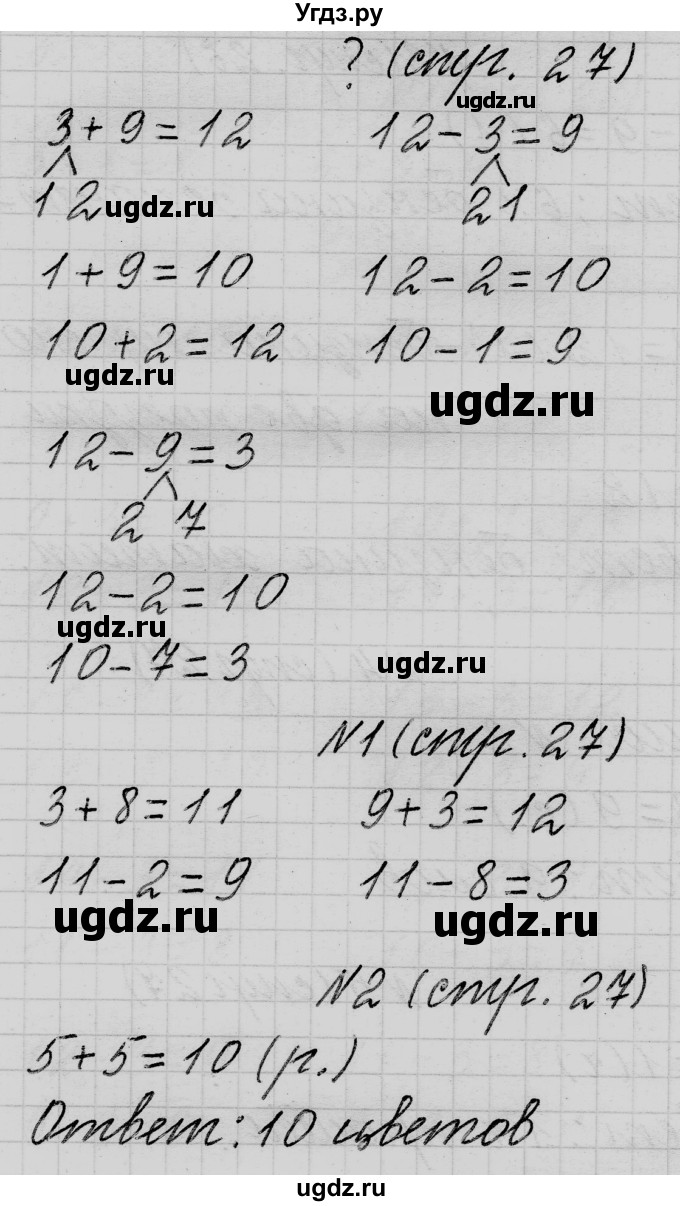 Угдз.ру
? (стр. 27)
ugdz.ru
3+9=12 12-3=9
1 2 ugdz.ru 2 1
1+9=10 12-2=10
10+2=12 10-1=9
ugdz.ru ugdz.ru
12-9=3
2 7
12-2=10
ugdz.ru
10-7=3 ugdz.ru
N1 (стр. 27)
3+8=11 9+3=12
11-2=9 11-8=3
ugdz.ru ugdz.ru
N2 (стр. 27)
5+5=10 (р.)
Ответ: 10 цветов
ugdz.ru